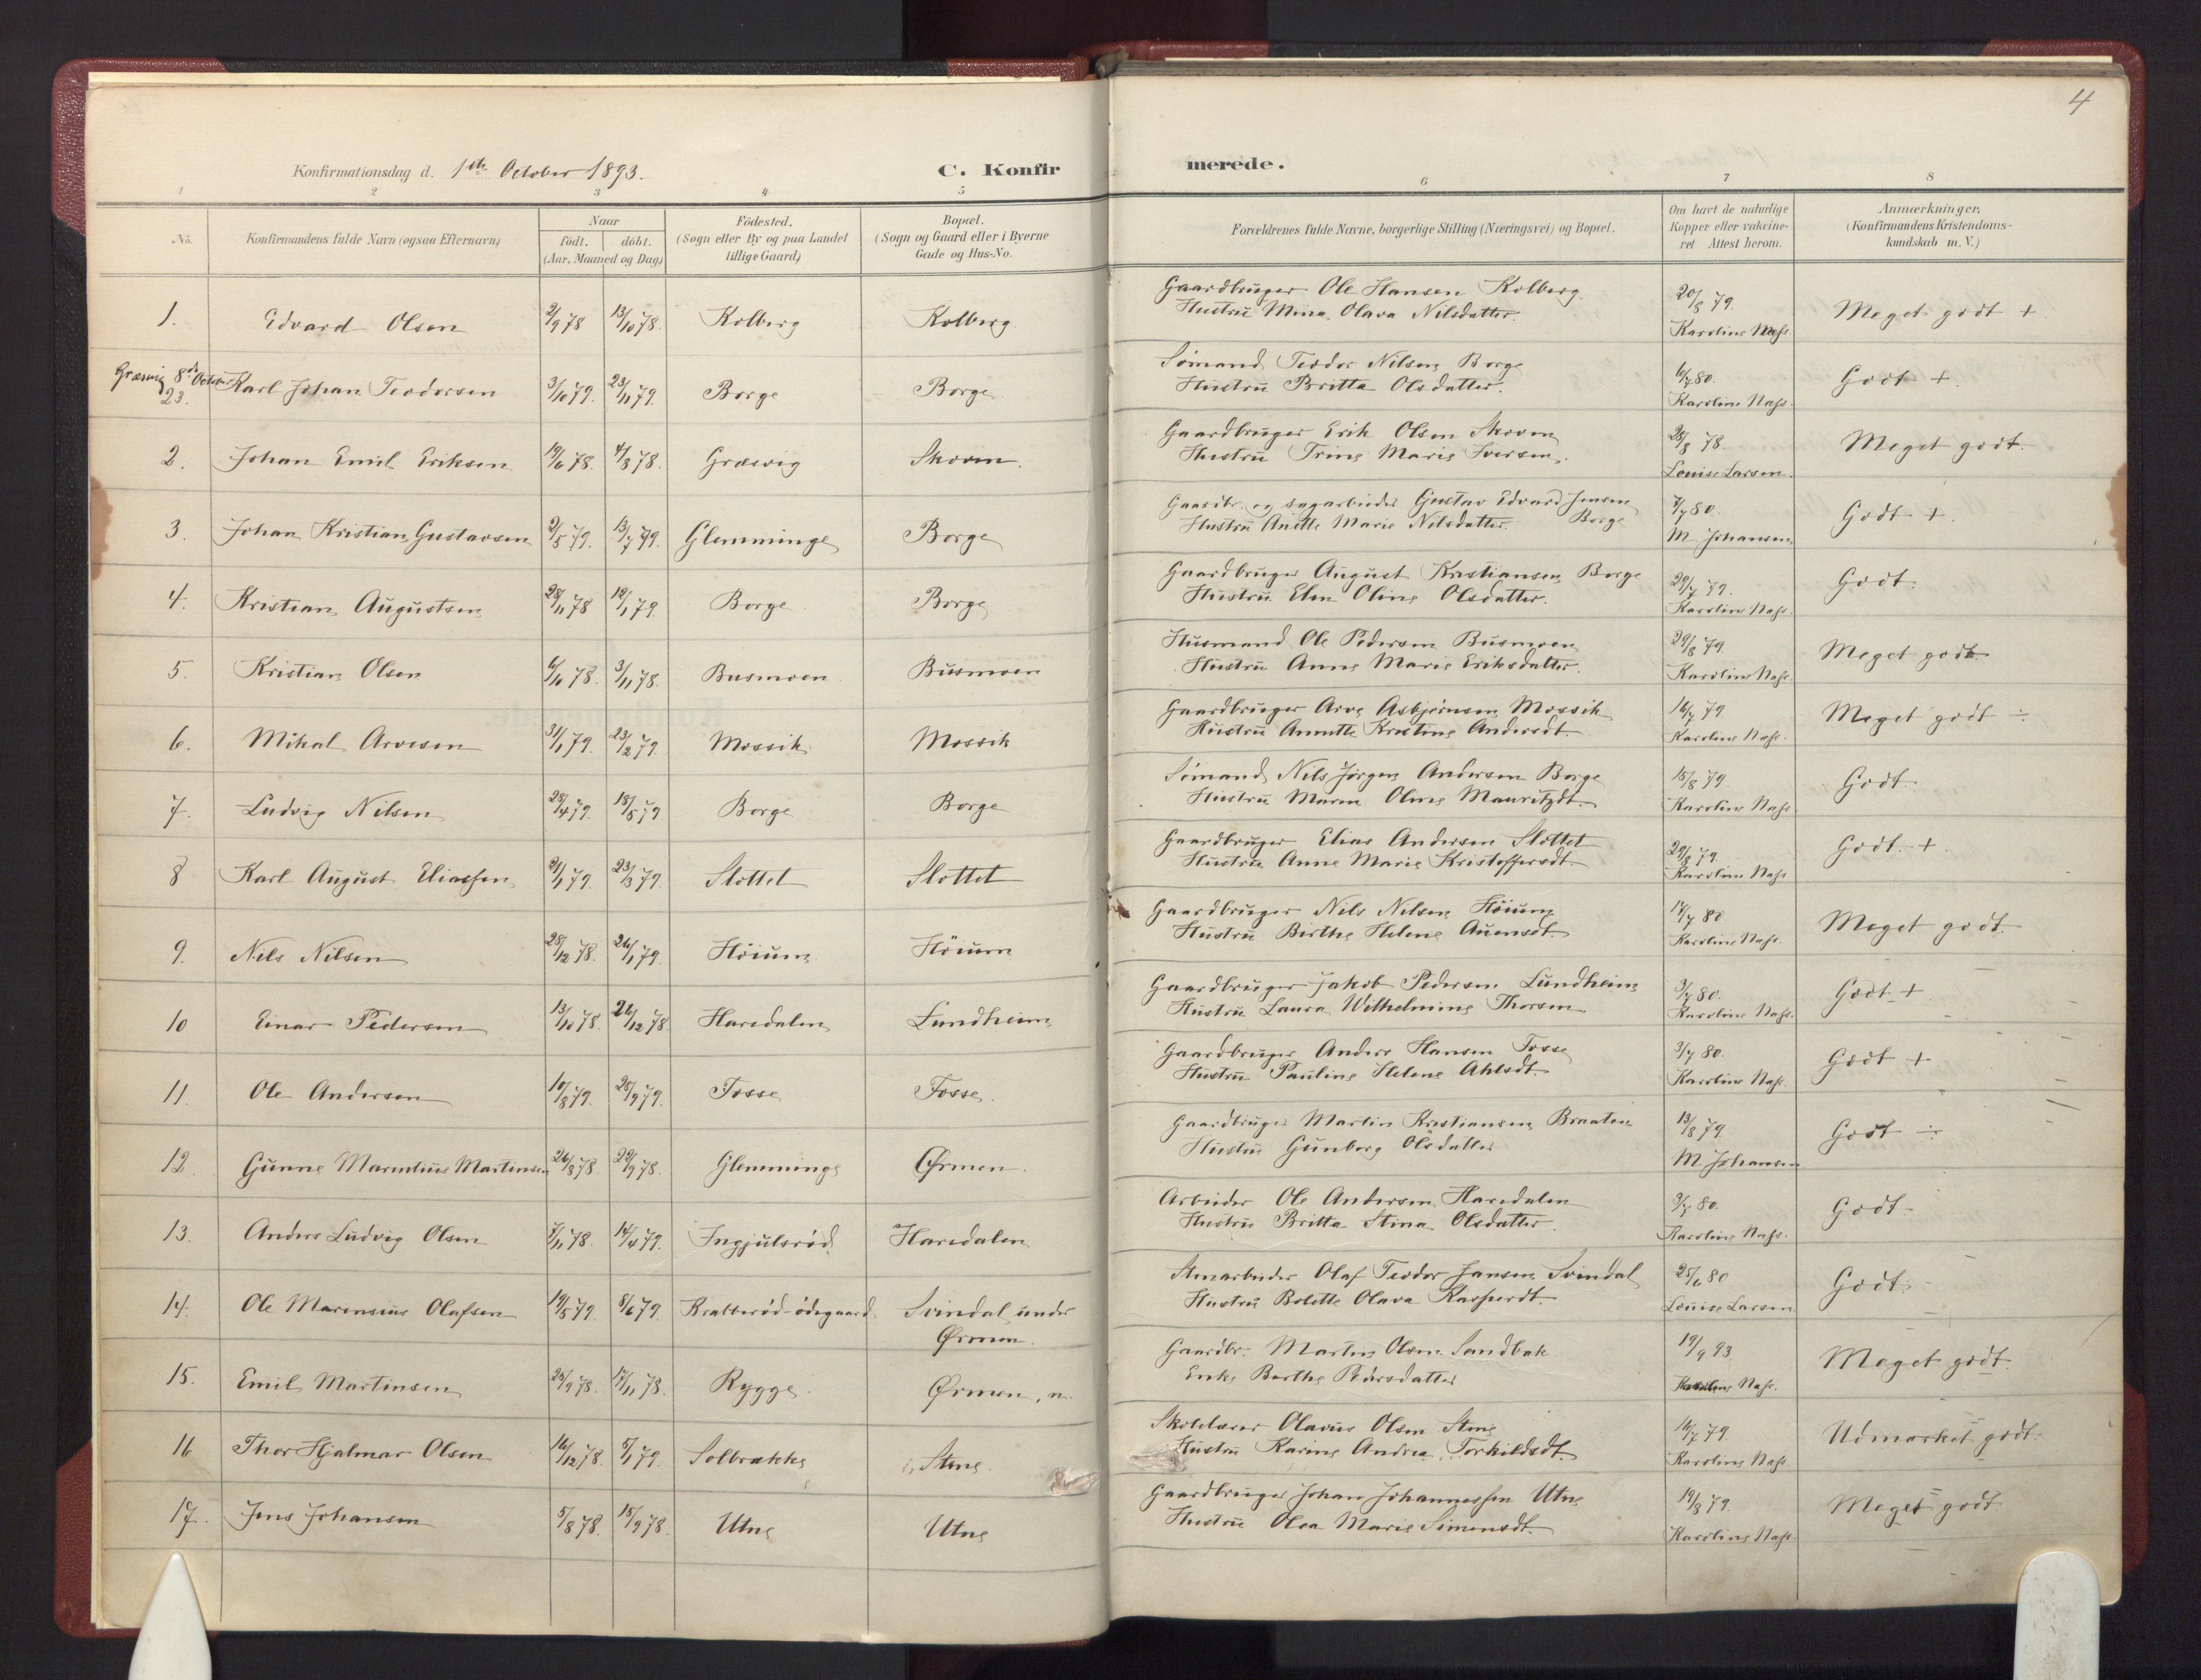 4
Konfirmationsdag d. 1ste October 1893. C. Konfirmerede.
1 2 3 4 5 6 7 8
No. Konfirmandens fulde Navn (ogsaa Efternavn) Naar født. døbt. (Aar, Maaned og Dag) Fødested. (Sogn eller By og paa Landet tillige Gaard) Bopæl. (Sogn og Gaard eller i Byerne Gade og Hus-No. Forældrenes fulde Navne, borgerlige Stilling (Næringsvei) og Bopæl. Om havt de naturlige Kopper eller vaccineret Attest herom. Anmærkninger, (Konfirmandens Kristendomskundskab m. V.)
1. Edvard Olsen 2/9 78 13/10 78. Kolberg Kolberg. Gaardbruger Ole Hansen Kolberg 20/8 79. Meget godt +
Hustru Mina Olava Nilsdatter. Karoline Næss
Græsvig 8de October
23. Karl Johan Teodorsen 3/10 79. 23/11 79. Borge Borge Sømand Teodor Nilsen Borge 6/7 80. Godt +.
Hustru Britta Olsdatter. Karoline Næss.
2. Johan Emil Eriksen 19/6 78. 4/8 78. Græsvig Skoven. Gaardbruger Erik Olsen Skoven 28/8 78. Meget godt.
Hustru Trine Marie Iversen. Louise Larsen.
3. Johan Kristian Gustavsen 2/5 79. 13/7 79. Glemminge Borge Gaardbr. og sagarbeider Gustav Edvard Jensen 7/7 80. Godt +.
Hustru Anette Marie Nilsdatter. Borge M. Johansen
4. Kristian Augustsen 28/11 78 12/1 79. Borge Borge Gaardbruger August Kristiansen Borge 29/7 79. Godt.
Hustru Elen Oline Olsdatter. Karoline Næss.
5. Kristian Olsen 6/10 78. 3/11 78. Busmoen Busmoen Husmand Ole Pedersen Busmoen 29/8 79. Meget godt.
Hustru Anne Marie Eriksdatter. Karoline Næss.
6. Mikal Arvesen 31/1 79. 23/2 79. Mossik Mossik Gaardbruger Arve Asbjørnsen Mossik 16/7 79 Meget godt ÷
Hustru Annette Kristine Andersdt. Karoline Næss.
7. Ludvig Nilsen 28/4 79. 18/5 79 Borge Borge Sømand Nils Jørgen Andersen Borge 15/8 79. Godt.
Hustru Maren Oline Mauritzdt. Karoline Næss
8 Karl August Eliassen 21/1 79. 23/3 79. Slottet Slottet Gaardbruger Elias Andersen Slottet 29/8 79. Godt. +
Hustru Anne Marie Kristoffersdt. Karoline Næss
9. Nils Nilsen 28/12 78. 26/1 79. Høium Høium Gaardbruger Nils Nilsen Høium 14/7 80 Meget godt.
Hustru Birthe Helene Auensdt. Karoline Næss.
10 Einar Pedersen 13/10 78. 26/12 78 Haredalen Lundheim Gaardbruger Jakob Pedersen Lundheim 3/7 80. Godt +
Hustru Laura Wilhelmine Thorsen Karoline Næss.
11. Ole Andersen 10/8 79. 28/9 79. Fosse Fosse. Gaardbruger Anders Hansen Fosse 3/7 80. Godt +
Hustru Pauline Helene Ahlsdt. Karoline Næss.
12. Gunne Marentius Martinsen 26/8 78. 29/9 78. Glemminge Ørmen. Gaardbruger Martin Kristiansen Braaten 13/8 79. Godt ÷
Hustru Gunborg Olsdatter M Johansen
13. Anders Ludvig Olsen 7/11 78 14/4 79. Ingjulsrød Haredalen Arbeider Ole Andersen Haredalen 3/7 80. Godt.
Hustru Britta Stina Olsdatter. Karoline Næss.
14. Ole Marensius Olafsen 19/5 79. 8/6 79. Krabberød-ødegaard Svindal under Ørmen. Stenarbeider Olaf Teodor Jansen Svindal 25/6 80 Godt.
Hustru Bolette Olava Kaspersdt. Louise Larsen
15. Emil Martinsen 25/9 78. 17/11 78. Rygge. Ørmen, n. Gaardbr. Martin Olsen Sandbak 19/9 93. Meget godt.
Enke Berthe Pedersdatter Karoline Næss.
16 Thor Hjalmar Olsen 16/12 78. 5/1 79. Solbrække Stene. Skolelærer Olavus Olsen Stene 16/7 79 Udmærket godt.
Hustru Karine Andrea Torkildsdt. Karoline Næss
17. Jens Johansen 5/8 78. 15/9 78. Utne Utne Gaardbruger Johan Johannessen Utne 19/8 79. Meget godt.
Hustru Olea Marie Simensdt. Karoline Næss.